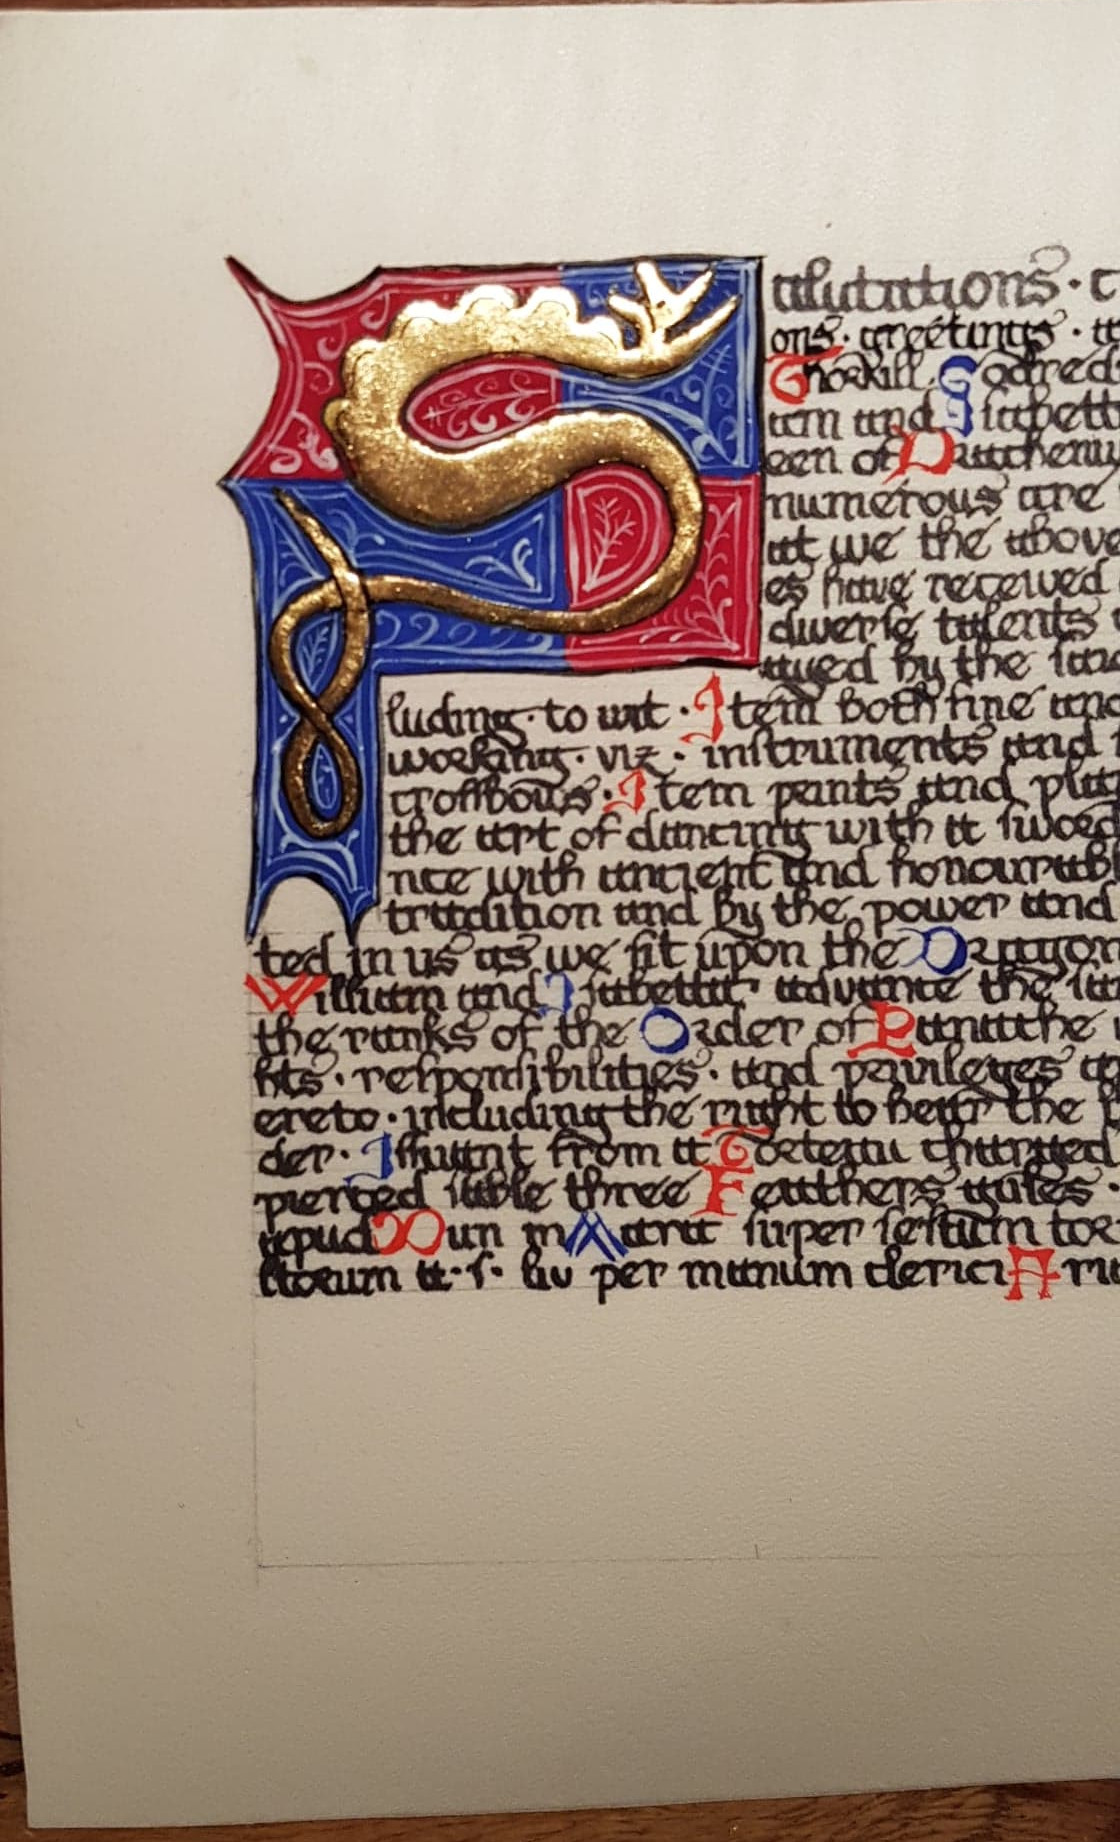 Salutations · c
ons · greetings · a
Thorkill. Godred
am and Isabett
een of Drachenw
numerous are
at we the above
es have received
diverse talents
ayed by the
luding · to wit · Item both fine and
working · viz · instruments and
crossbows · Item pants and
the art of dancing with a sword
nce with ancient and honourabl
tradition and by the power and
ted in us as we sit upon the Dragon
William and Isabetta advance the
the ranks of the Order of Panache
hts · responsibilities · and privileges
ereto · including the right to bear the
der · Issuant from a Torteau charged
pierced sable three Feathers gules ·
apud Dun in Mara super festum
a · s · liv per manum clerici